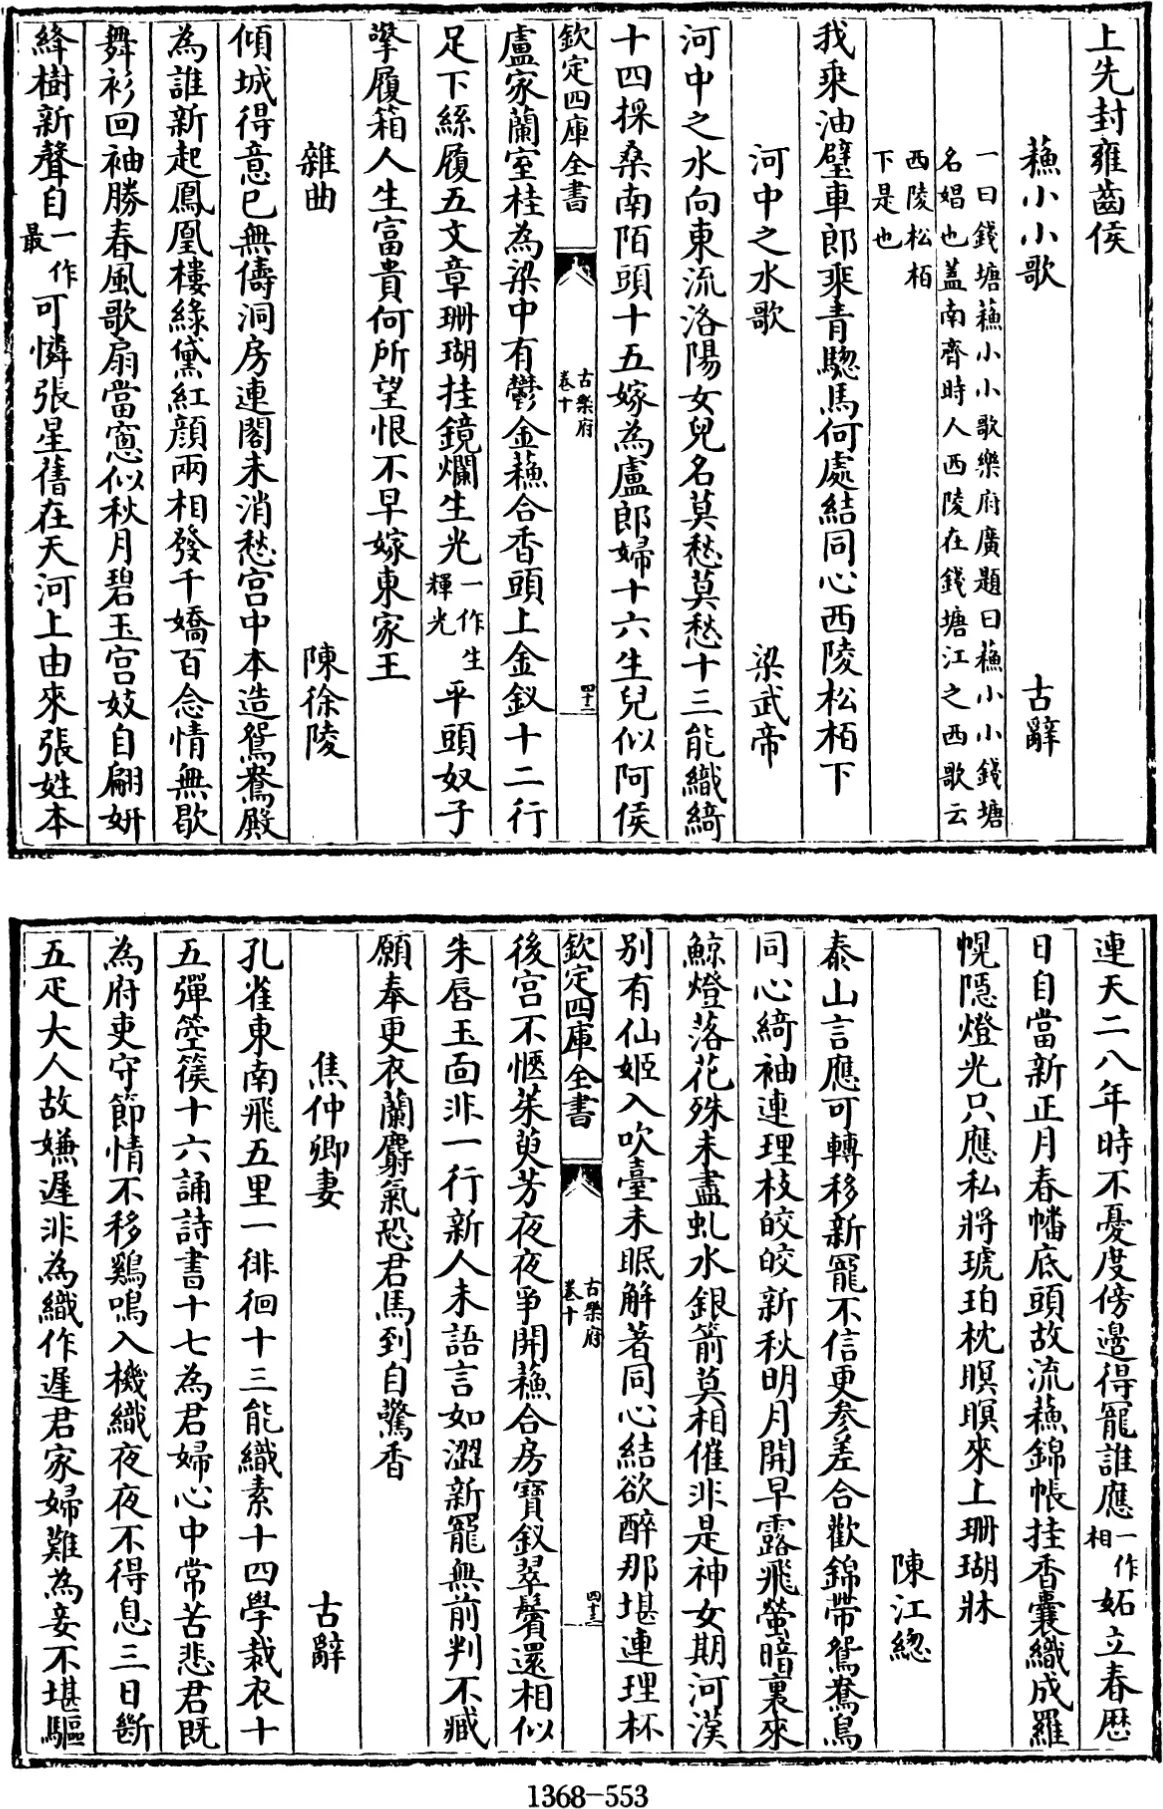 上先封雍齒侯
蘓小小歌　古辭
一曰錢塘蘓小小歌樂府廣題曰蘓小小錢塘
名娼也蓋南齊時人西陵在錢塘江之西歌云
西陵松栢
下是也
我乘油壁車郎乘青驄馬何處結同心西陵松栢下
河中之水歌　梁武帝
河中之水向東流洛陽女兒名莫愁莫愁十三能織綺
十四採桑南陌頭十五嫁為盧郎婦十六生兒似阿侯
欽定四庫全書　古樂府卷十　四十二
盧家蘭室桂為梁中有鬱金蘓合香頭上金釵十二行
足下絲履五文章珊瑚挂鏡爛生光一作生輝光平頭奴子
擎履箱人生富貴何所望恨不早嫁東家王
雜曲　陳徐陵
傾城得意已無儔洞房連閣未消愁宫中本造鴛鴦殿
為誰新起鳳凰樓綠黛紅顔兩相發千嬌百念情無歇
舞衫回袖勝春風歌扇當窻似秋月碧玉宫妓自翩妍
絳樹新聲自一作最可憐張星舊在天河上由來張姓本
連天二八年時不憂度傍邊得寵誰應一作相妬立春厯
日自當新正月春幡底頭故流蘓錦帳挂香囊織成羅
幌隱燈光只應私將琥珀枕瞑瞑來上珊瑚牀
陳江總
泰山言應可轉移新寵不信更參差合歡錦帶鴛鴦鳥
同心綺袖連理枝皎皎新秋明月開早露飛螢暗裏來
鯨燈落花殊未盡虬水銀箭莫相催非是神女期河漢
别有仙姬入吹臺未眠解著同心結欲醉那堪連理杯
欽定四庫全書　古樂府卷十　四十三
後宫不愜茱萸芳夜夜爭開蘓合房寶釵翠鬢還相似
朱唇玉面非一行新人未語言如澀新寵無前判不臧
願奉更衣蘭麝氣恐君馬到自驚香
焦仲卿妻　古辭
孔雀東南飛五里一徘徊十三能織素十四學裁衣十
五彈箜篌十六誦詩書十七為君婦心中常苦悲君既
為府吏守節情不移鷄鳴入機織夜夜不得息三日斷
五疋大人故嫌遲非為織作遲君家婦難為妾不堪驅
1368-553